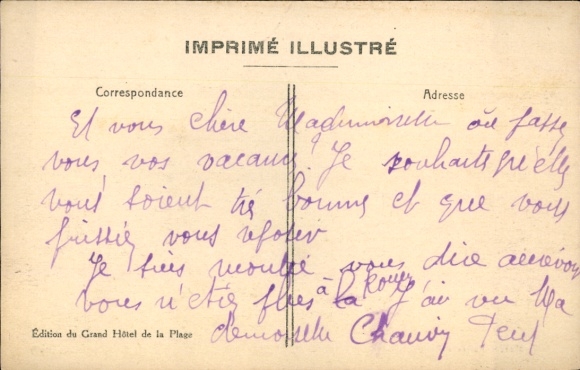 IMPRIMÉ ILLUSTRÉ
Correspondance
Adresse
Et vous chère Mademoiselle où passez
vous vos vacances. Je souhaite qu'elles
vous soient très bonnes et que vous
puissiez vous
Je vous dire au revoir
vous n'étiez plus à la J'ai vu Ma
demoiselle Chauvin
Édition du Grand Hôtel de la Plage